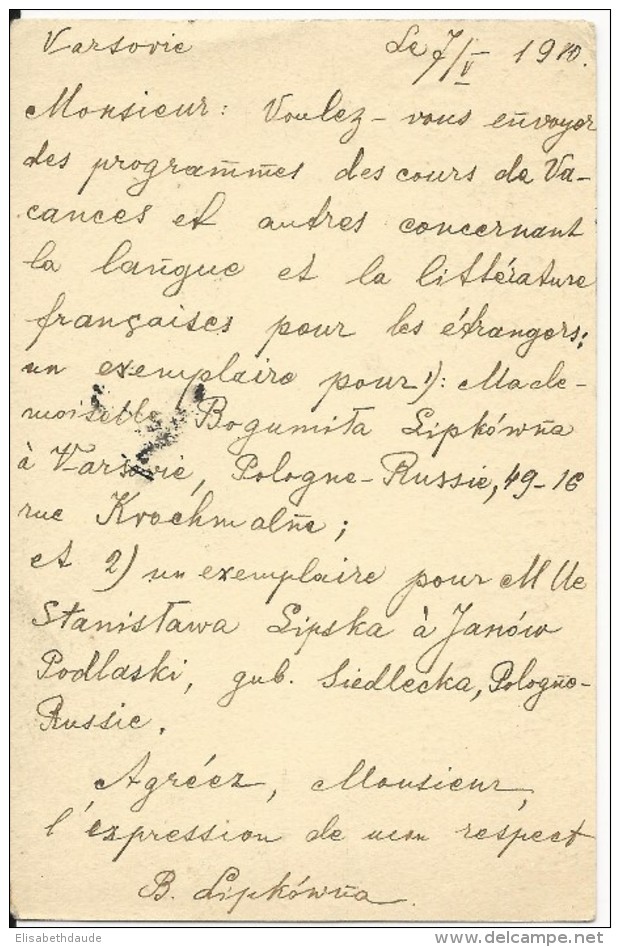 Varsovie Le 7/V 1910.
Monsieur: Voulez-vous envoyer
des programmes des cours de Va-
cances et autres concernant
la langue et la littérature
françaises pour les étrangers;
un exemplaire pour 1): Made-
moiselle Bogumiła Lipkówna
à Varsovie, Pologne-Russie, 49-16
rue Krochmalne;
et 2) un exemplaire pour Mlle
Stanisława Lipska à Janów
Podlaski, gub. Siedlecka, Pologne-
Russie.
Agréez, Monsieur,
l'expression de mon respect
B. Lipkówna.
Elisabethdaude
www.delcampe.net